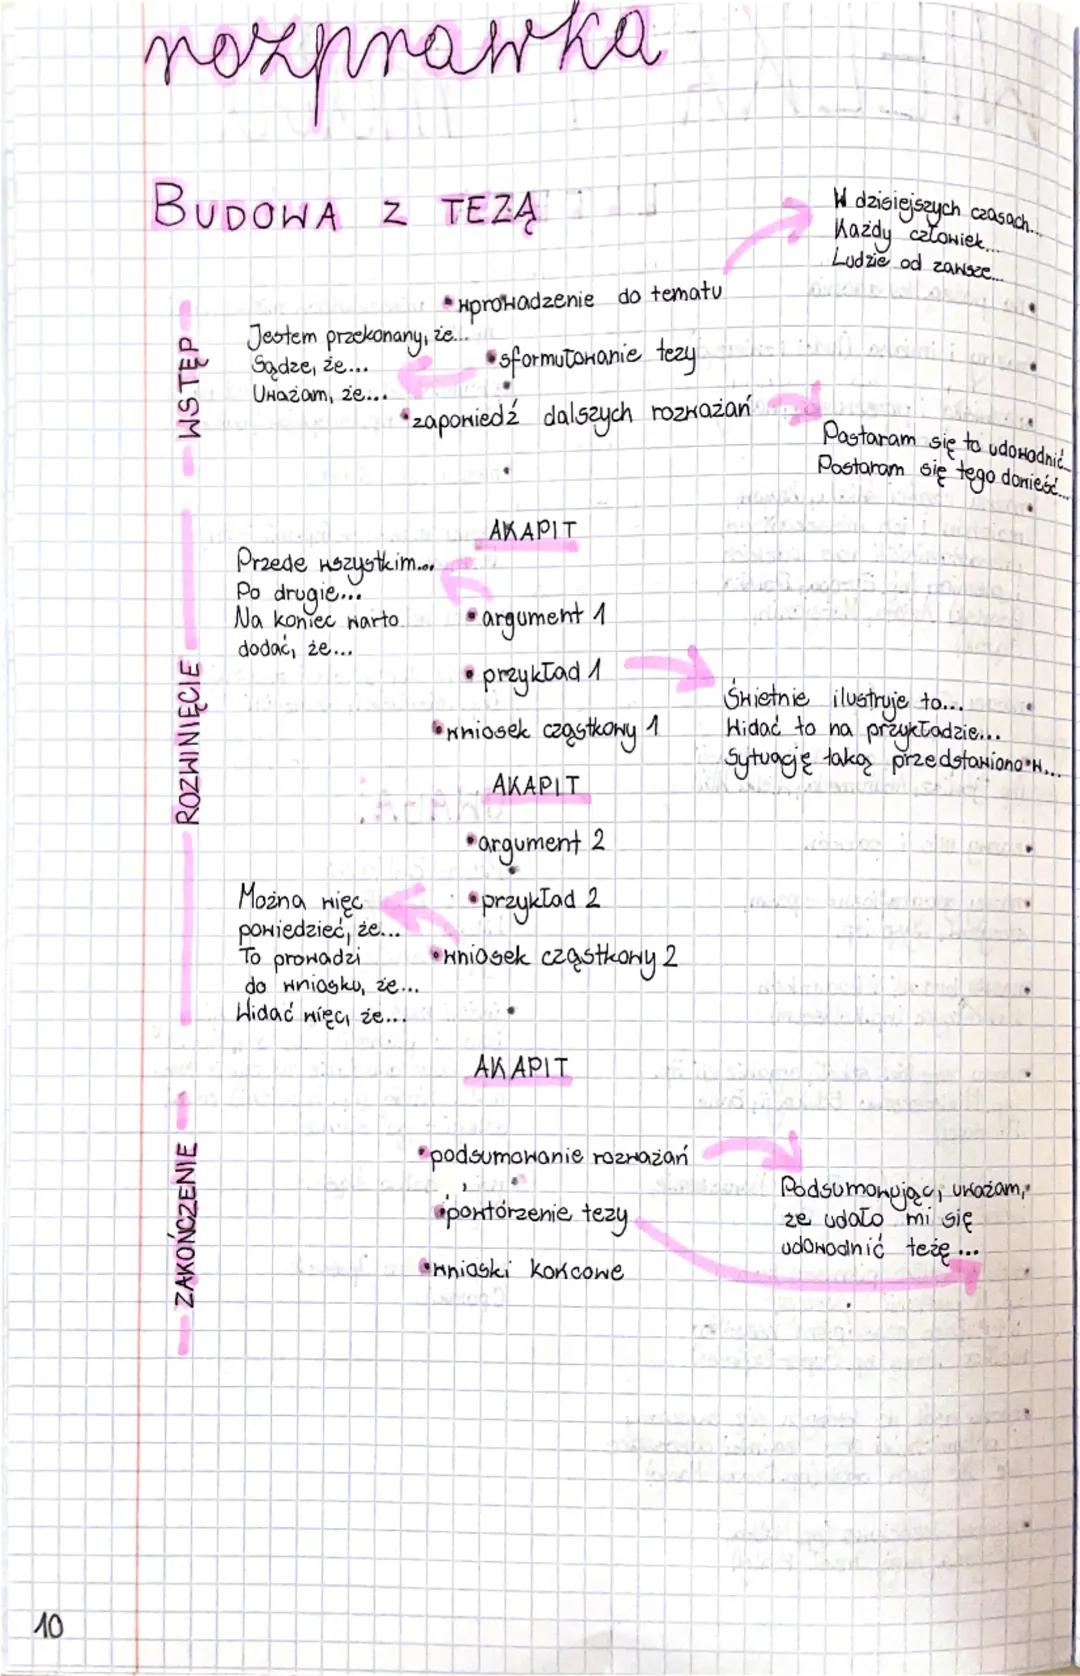 rozprawka
BUDOWA Z TEZĄ
W dzisiejszych czasach...
Każdy człowiek...
Ludzie od zawsze...
WSTĘP
• wprowadzenie do tematu
Jestem przekonany, że...
Sądze, że...
Uważam, że...
• sformułowanie tezy
• zapowiedź dalszych rozważań
Postaram się to udowodnić...
Postaram się tego dowieść...
ROZWINIĘCIE
AKAPIT
Przede wszystkim...
Po drugie...
Na koniec warto
dodać, że...
• argument 1
• przykład 1
Świetnie ilustruje to...
Widać to na przykładzie...
Sytuację taką przedstawiono w...
• wniosek cząstkowy 1
AKAPIT
• argument 2
• przykład 2
Można więc
powiedzieć, że...
To prowadzi
do wniosku, że...
Widać więc, że...
• wniosek cząstkowy 2
AKAPIT
ZAKOŃCZENIE
• podsumowanie rozważań
Podsumowując, uważam,
że udało mi się
udowodnić tezę...
• powtórzenie tezy
• wnioski końcowe
10